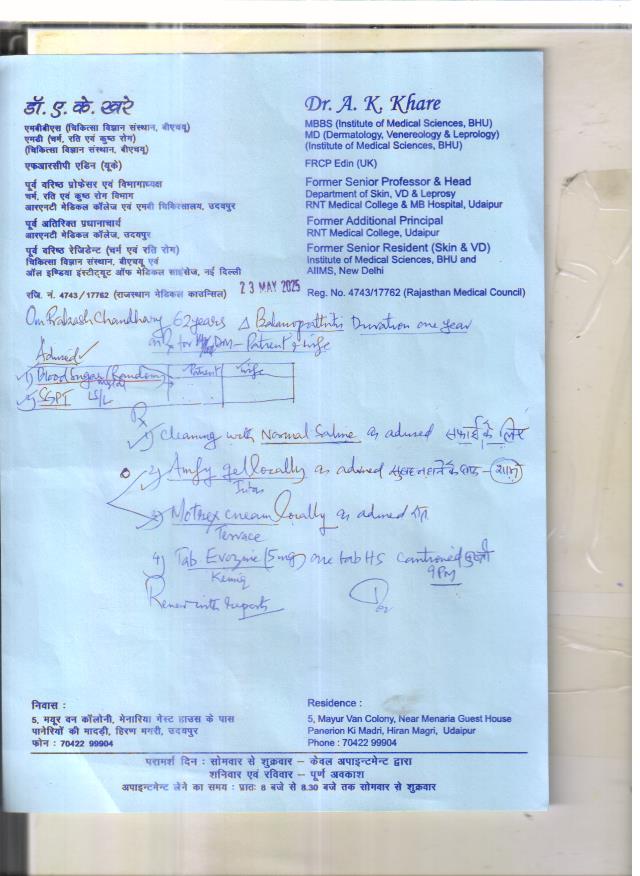 डॉ. ए. के. खरे
एमबीबीएस (चिकित्सा विज्ञान संस्थान, बीएचयू)
एमडी (चर्म, रति एवं कुष्ठ रोग)
(चिकित्सा विज्ञान संस्थान, बीएचयू)
एफआरसीपी एडिन (यूके)
पूर्व वरिष्ठ प्रोफेसर एवं विभागाध्यक्ष
चर्म, रति एवं कुष्ठ रोग विभाग
आरएनटी मेडिकल कॉलेज एवं एमबी चिकित्सालय, उदयपुर
पूर्व अतिरिक्त प्रधानाचार्य
आरएनटी मेडिकल कॉलेज, उदयपुर
पूर्व वरिष्ठ रेजिडेन्ट (चर्म एवं रति रोग)
चिकित्सा विज्ञान संस्थान, बीएचयू एवं
ऑल इण्डिया इंस्टीट्यूट ऑफ मेडिकल साइंसेज, नई दिल्ली
रजि. नं. 4743/17762 (राजस्थान मेडिकल काउन्सिल)
Dr. A. K. Khare
MBBS (Institute of Medical Sciences, BHU)
MD (Dermatology, Venereology & Leprology)
(Institute of Medical Sciences, BHU)
FRCP Edin (UK)
Former Senior Professor & Head
Department of Skin, VD & Leprosy
RNT Medical College & MB Hospital, Udaipur
Former Additional Principal
RNT Medical College, Udaipur
Former Senior Resident (Skin & VD)
Institute of Medical Sciences, BHU and
AIIMS, New Delhi
Reg. No. 4743/17762 (Rajasthan Medical Council)
23 MAY 2025
Om Prakash Chandhary 62 years Δ Balanoposthitis Duration one year
DM - Patient & wife
Advised
1) Blood Sugar (Random) Patient wife
2) SGPT
Rx
1) Cleaning with Normal Saline as advised सफाई के लिए
2) Amfy gel locally as advised सुबह नहाने के बाद - शाम
Intas
3) Motrex cream locally as advised
Terrace
4) Tab Evozine (5mg) one tab HS
9PM
Review with reports
निवास :
5, मयूर वन कॉलोनी, मेनारिया गेस्ट हाउस के पास
पानेरियों की मादड़ी, हिरण मगरी, उदयपुर
फोन : 70422 99904
Residence :
5, Mayur Van Colony, Near Menaria Guest House
Panerion Ki Madri, Hiran Magri, Udaipur
Phone : 70422 99904
परामर्श दिन : सोमवार से शुक्रवार – केवल अपाइन्टमेन्ट द्वारा
शनिवार एवं रविवार – पूर्ण अवकाश
अपाइन्टमेन्ट लेने का समय : प्रातः 8 बजे से 8.30 बजे तक सोमवार से शुक्रवार